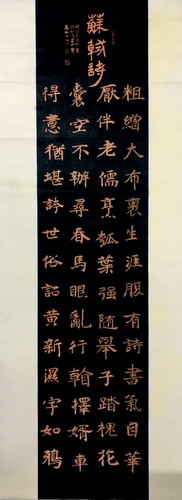 蘇軾詩
粗繒大布裹生涯腹有詩書氣自華
厭伴老儒烹瓠葉强隨舉子踏槐花
囊空不辦尋春馬眼亂行看擇婿車
得意猶堪誇世俗詔黄新濕字如鴉